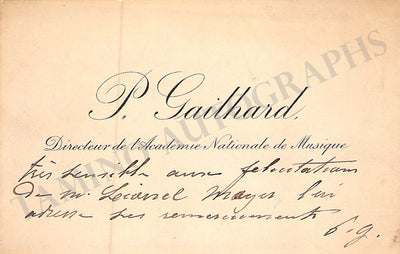 P. Gailhard,
Directeur de l'Académie Nationale de Musique
très sensible aux félicitations
de M. Lionel Mayer l'en
adresse ses remerciements
P. G.
TAMINO AUTOGRAPHS